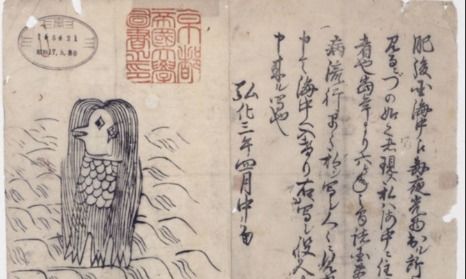 肥後国海中え毎夜光物出ル所
づの如之者現ス私ハ海中ニ住
者也当年より六ヶ年之間諸国豊
病流行早々私写シ人々ニ見
申て海中へ入けり右写シ役人
申来ル写也
弘化三年四月中旬
京都
帝國大學
圖書之印